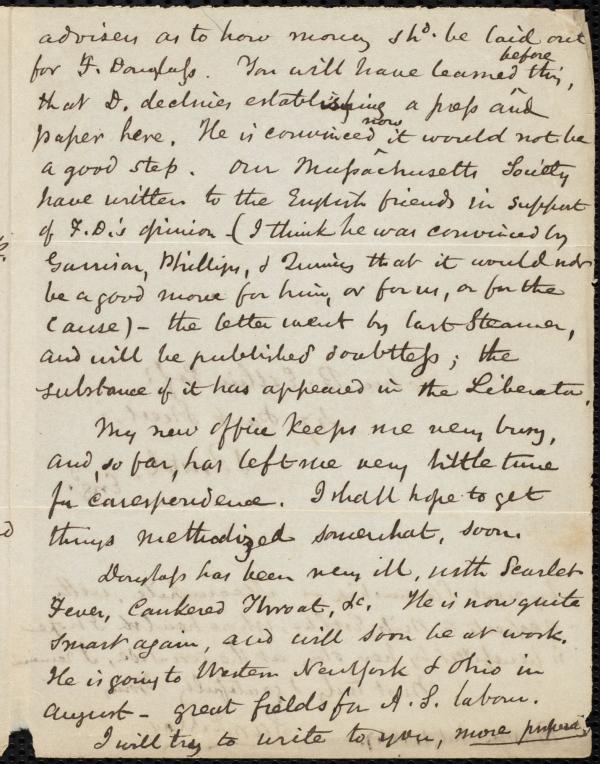 advisers as to how money shd. be laid out
for F. Douglass. You will have learned before this,
that D. declines establishing a press and
paper here. He is convinced now it would not be
a good step. Our Massachusetts Society
have written to the English friends in support
of F.D.'s opinion - (I think he was convinced by
Garrison, Phillips, & Quincy that it would not
be a good move for him, or for us, or for the
Cause) - the letter went by last Steamer,
and will be published doubtless; the
substance of it has appeared in the Liberator.
My new office keeps me very busy,
and, so far, has left me very little time
for correspondence. I shall hope to get
things methodized somewhat, soon.
Douglass has been very ill, with Scarlet
Fever, Cankered Throat, &c. He is now quite
smart again, and will soon be at work.
He is going to Western New York & Ohio in
August - great fields for A. S. labour.
I will try to write to you, more